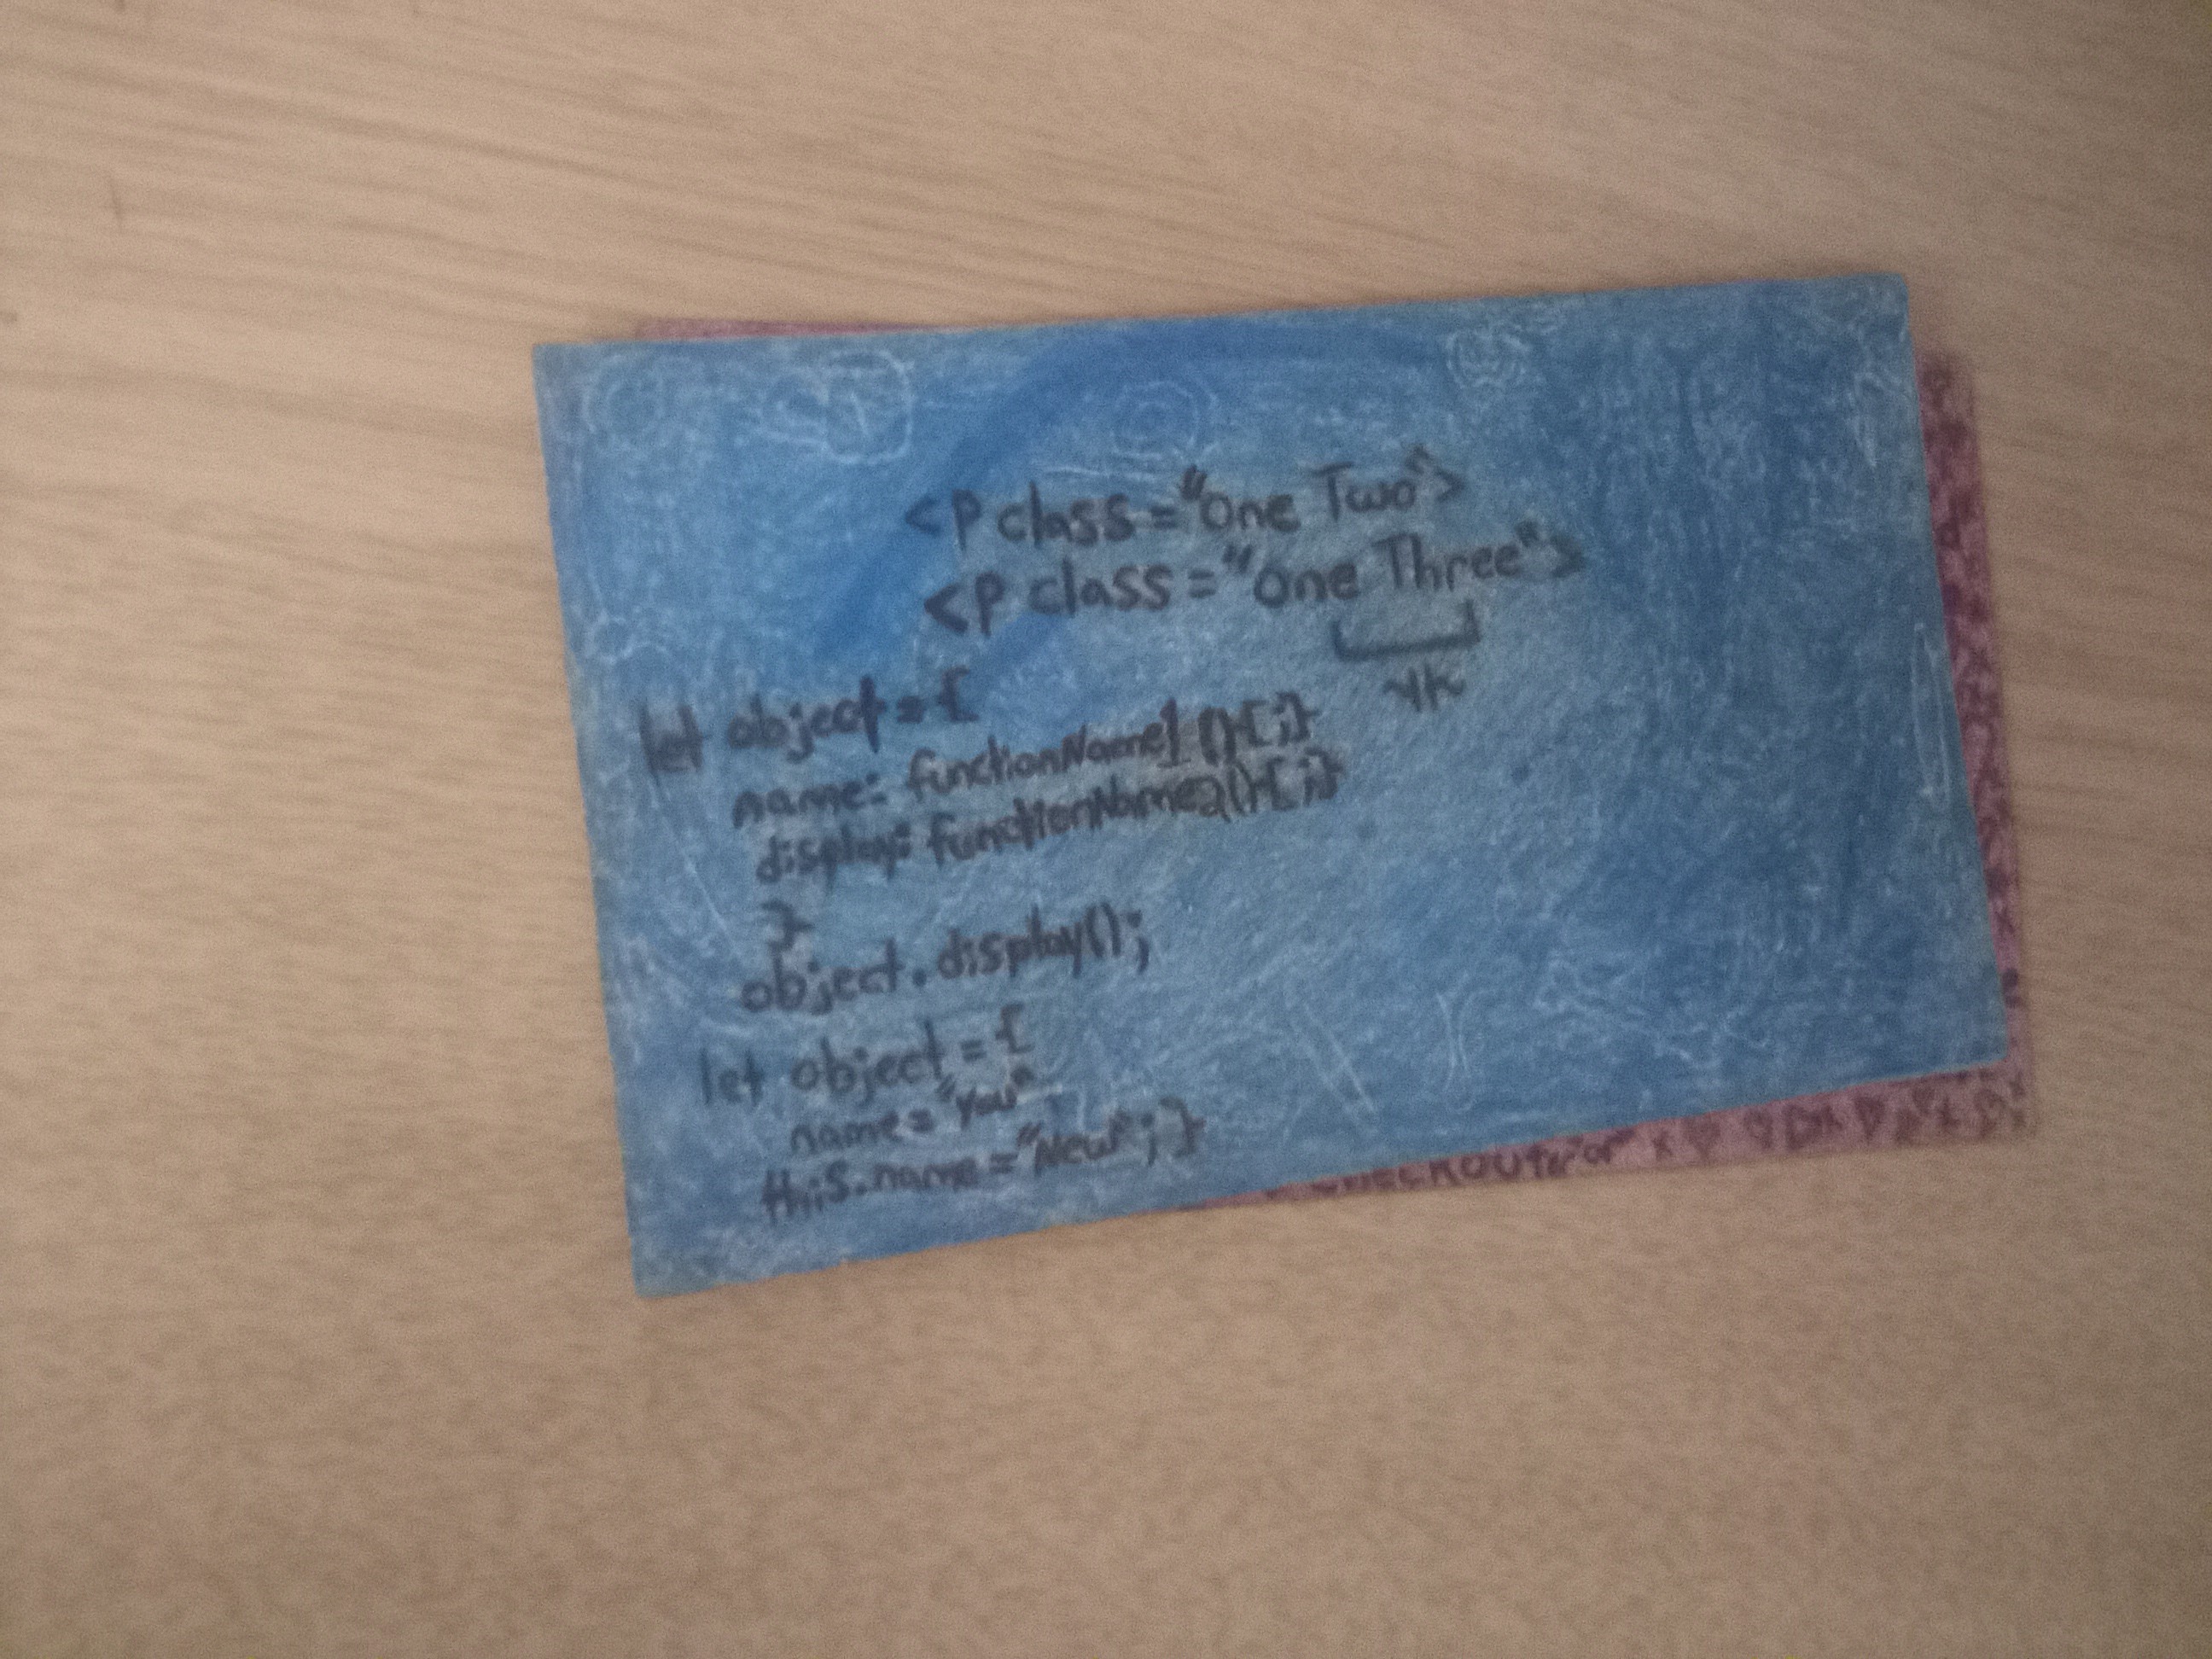 <p class="one Two">
<p class="one Three">
let object = {
name: functionName1 (){;}
display: functionName2(){;}
}
object.display();
let object = {
name = "You"
this.name = "New"; }